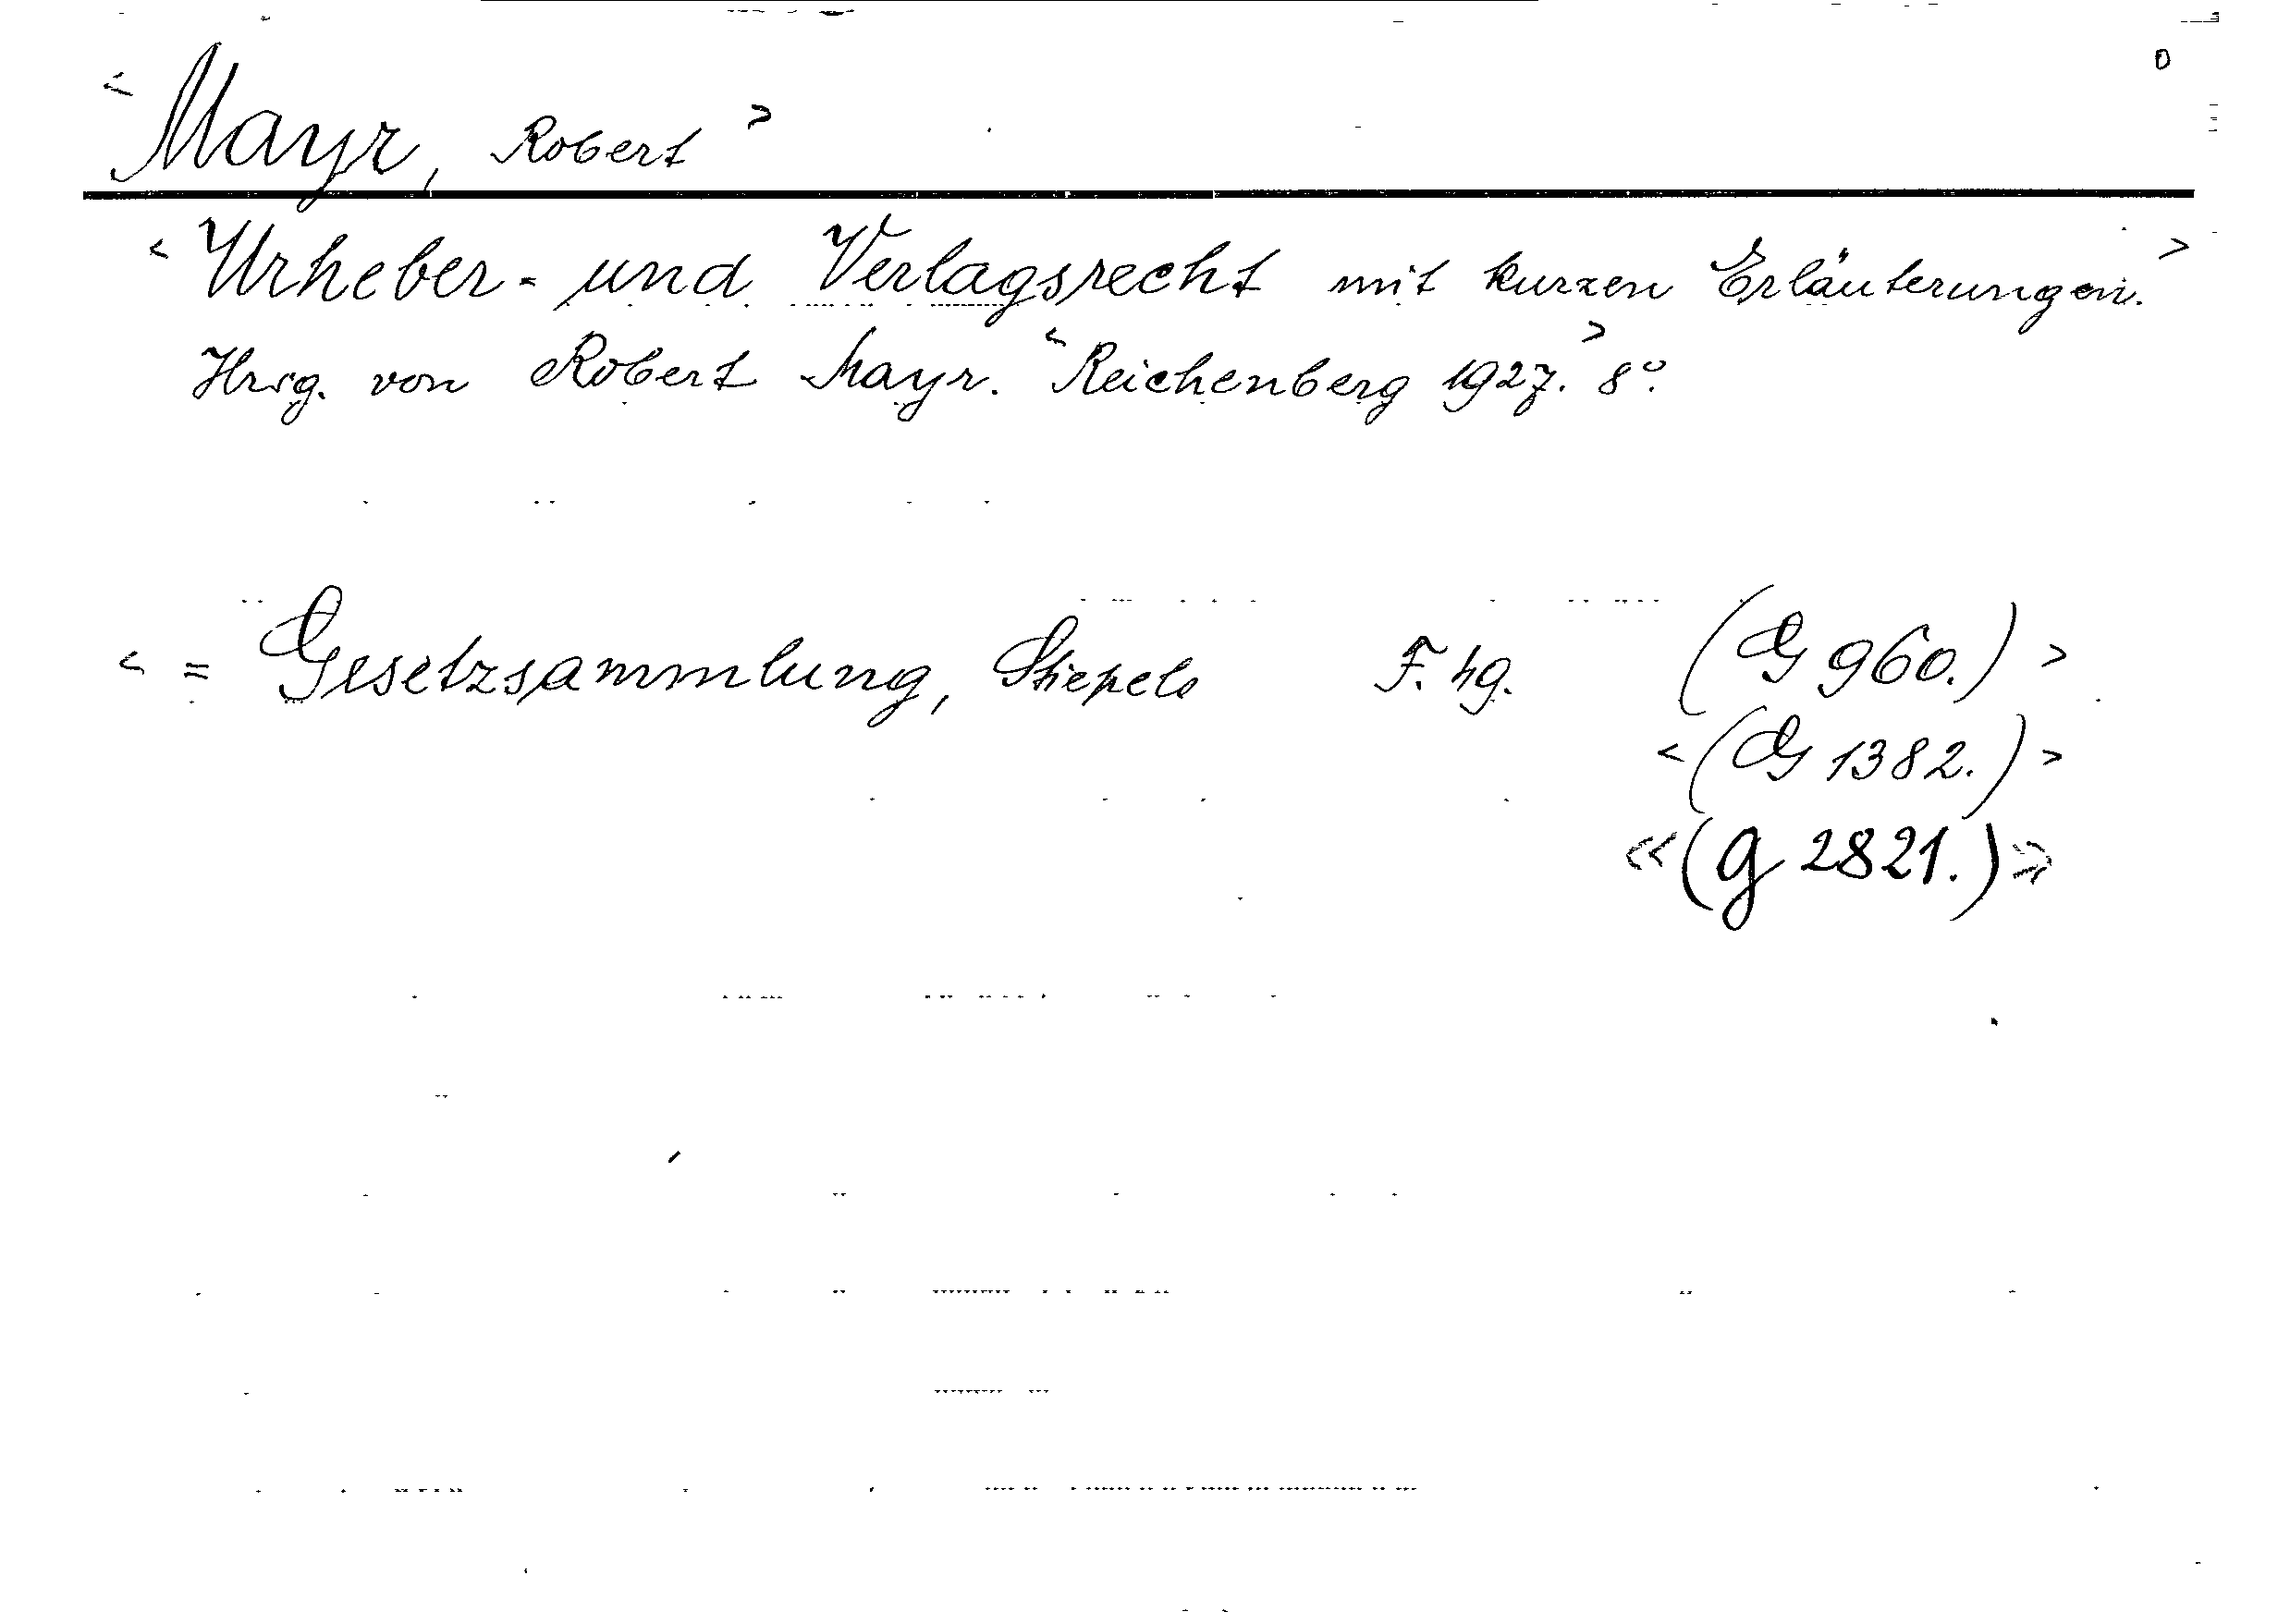 0
< Mayr, Robert >
< Urheber- und Verlagsrecht mit kurzen Erläuterungen. >
Hrsg. von Robert Mayr. < Reichenberg 1927. > 8°.
< = Gesetzsammlung, Stiepels F. 49. (G 960.) >
< (G 1382.) >
«(g 2821.)»